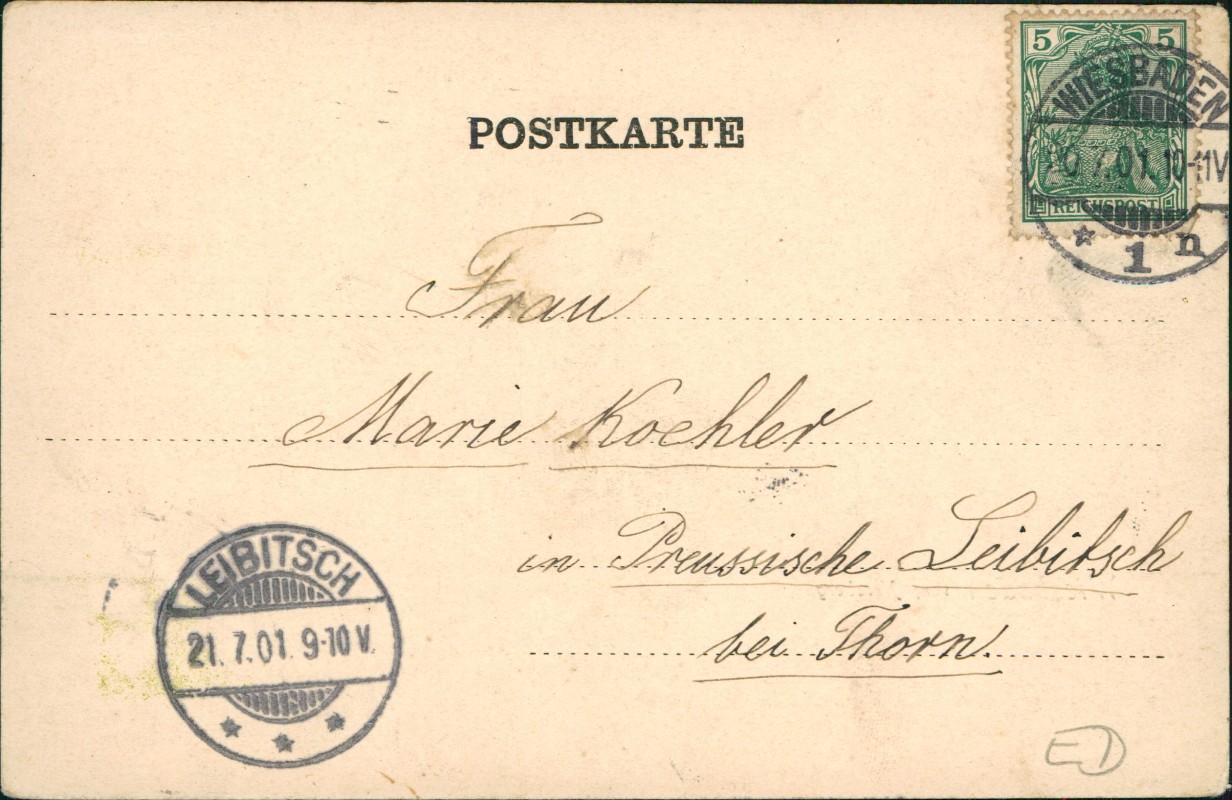 5 5
WIESBADEN
20.7.01.10-11V
REICHSPOST
* 1 n
POSTKARTE
Frau
Marie Koehler
in Preussische Leibitsch
bei Thorn.
LEIBITSCH
21.7.01. 9-10 V.
* * *